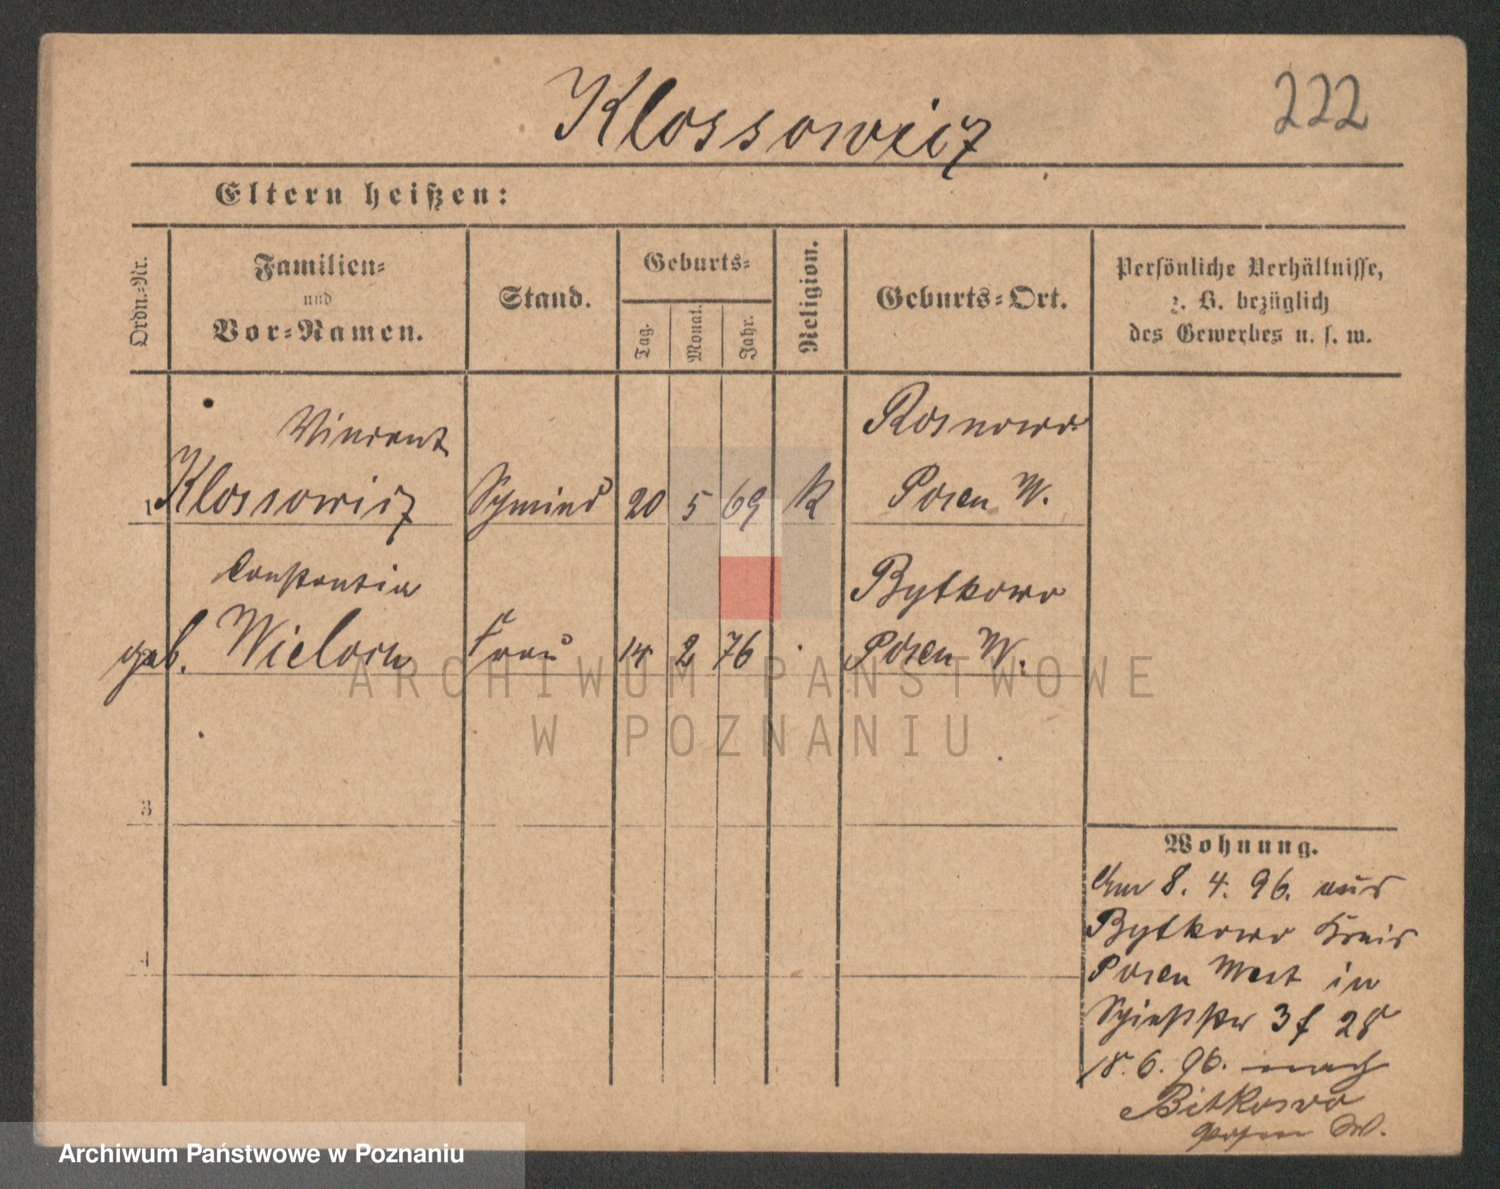 Klossowicz
222
Eltern heißen:
Ordn.-Nr.
Familien-
und
Vor-Namen.
Stand.
Geburts-
Tag.
Monat.
Jahr.
Religion.
Geburts-Ort.
Persönliche Verhältnisse,
z. B. bezüglich
des Gewerbes u. s. w.
Vincent
Klossowicz
Schmied
20
5
69
K
Rosnowo
Posen W.
Constantia
geb. Wieloch
Frau
14
2
76
Bytkowo
Posen W.
3
4
Wohnung.
Am 8. 4. 96. aus
Bytkowo Kreis
Posen West in
Schießstr 3 f 28
18. 6. 96. nach
Bitkowo
Posen W.
ARCHIWUM PAŃSTWOWE
W POZNANIU
Archiwum Państwowe w Poznaniu